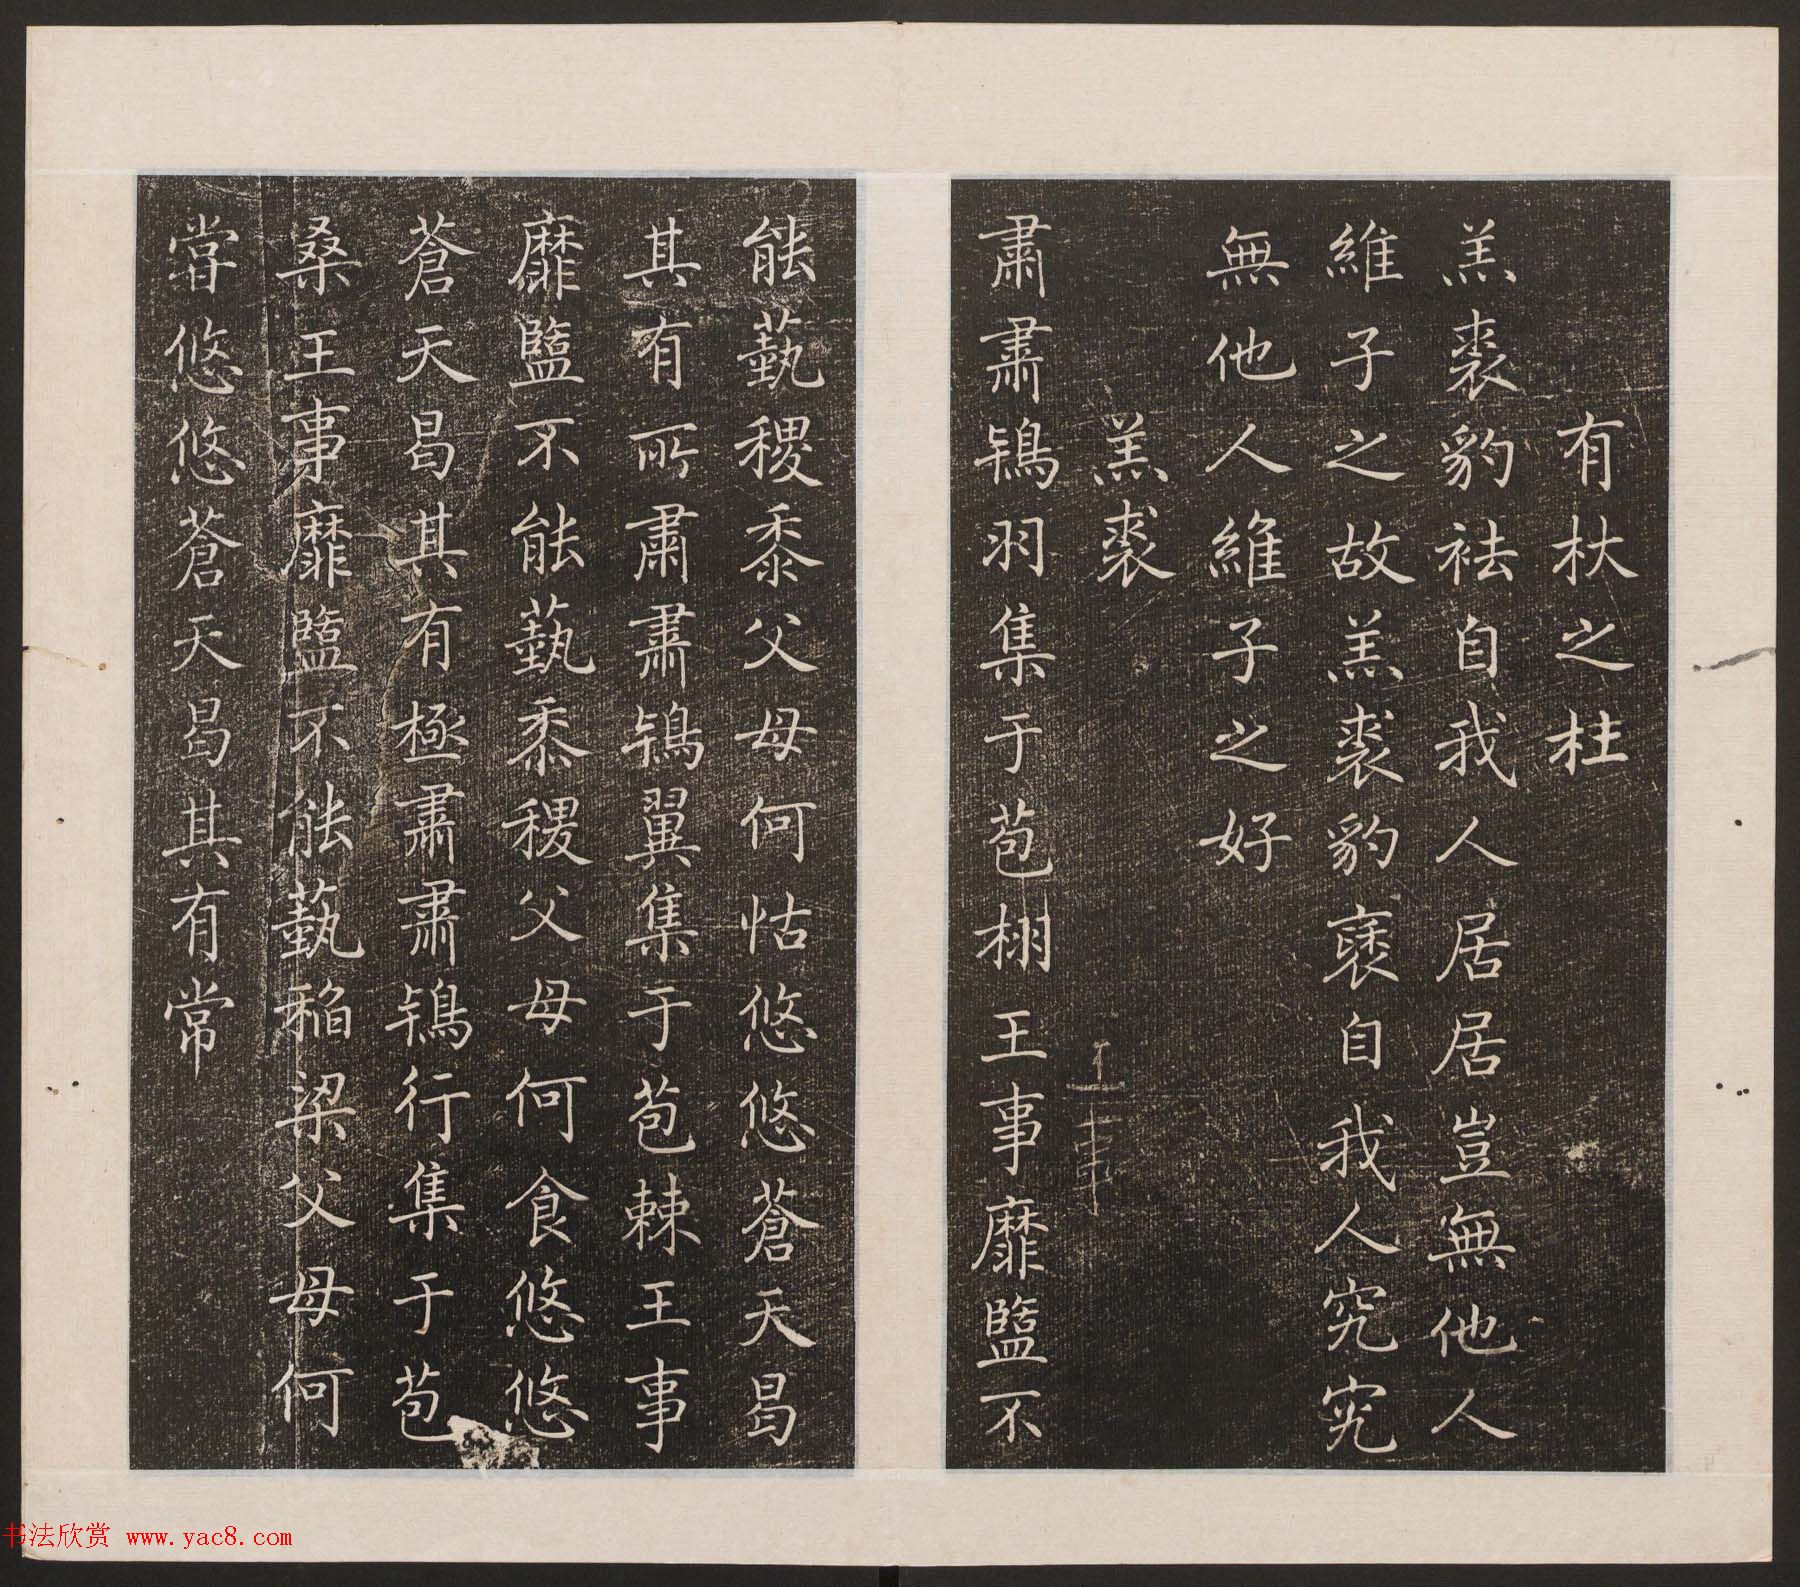 有杕之杜
羔裘豹袪自我人居居豈無他人
維子之故羔裘豹褎自我人究究
無他人維子之好
羔裘
王事
肅肅鴇羽集于苞栩王事靡盬不
能蓺稷黍父母何怙悠悠蒼天曷
其有所肅肅鴇翼集于苞棘王事
靡盬不能蓺黍稷父母何食悠悠
蒼天曷其有極肅肅鴇行集于苞
桑王事靡盬不能蓺稻粱父母何
嘗悠悠蒼天曷其有常
书法欣赏 www.yac8.com